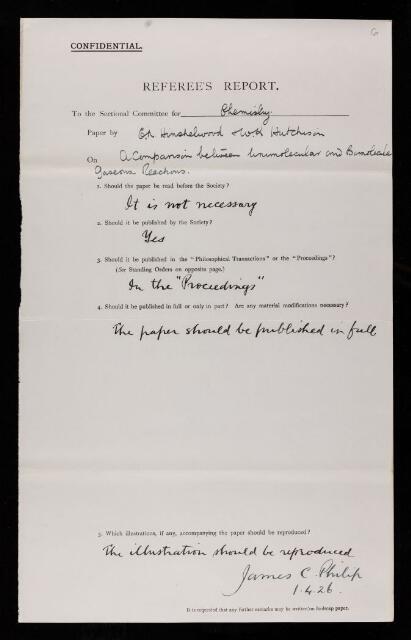 6
CONFIDENTIAL.
REFEREE'S REPORT.
To the Sectional Committee for Chemistry
Paper by C.N. Hinshelwood & W.K. Hutchison
On A Comparison between Unimolecular and Bimolecular
Gaseous Reactions.
1. Should the paper be read before the Society?
It is not necessary
2. Should it be published by the Society?
Yes
3. Should it be published in the "Philosophical Transactions" or the "Proceedings"?
(See Standing Orders on opposite page.)
In the "Proceedings"
4. Should it be published in full or only in part? Are any material modifications necessary?
The paper should be published in full
5. Which illustrations, if any, accompanying the paper should be reproduced?
The illustration should be reproduced
James C. Philip
1.4.26.
It is requested that any further remarks may be written on foolscap paper.